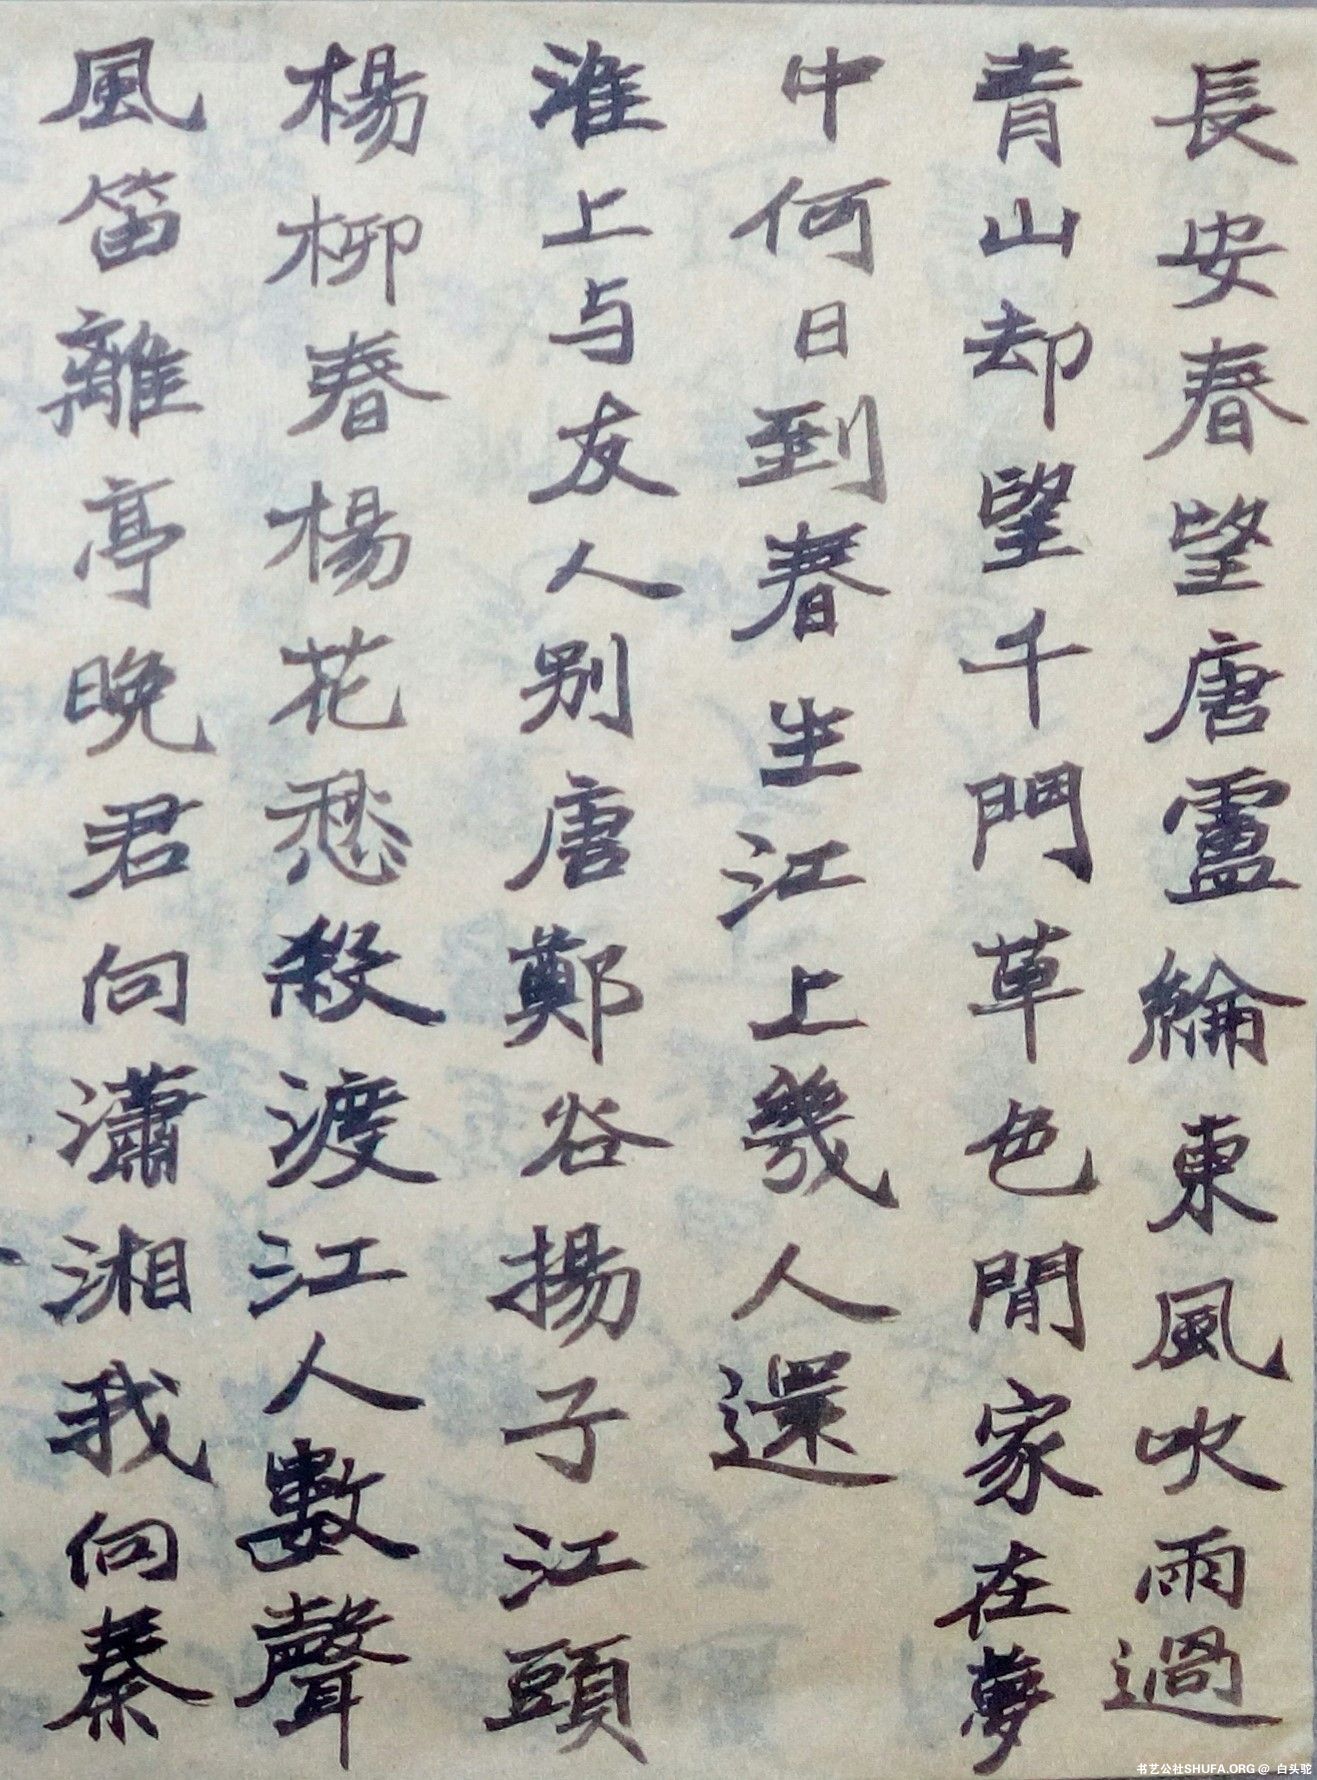 長安春望唐盧綸東風吹雨過
青山却望千門草色閒家在夢
中何日到春生江上幾人還
淮上与友人别唐鄭谷揚子江頭
楊柳春楊花愁殺渡江人數聲
風笛離亭晚君向瀟湘我向秦
书艺公社SHUFA.ORG @ 白头鸵